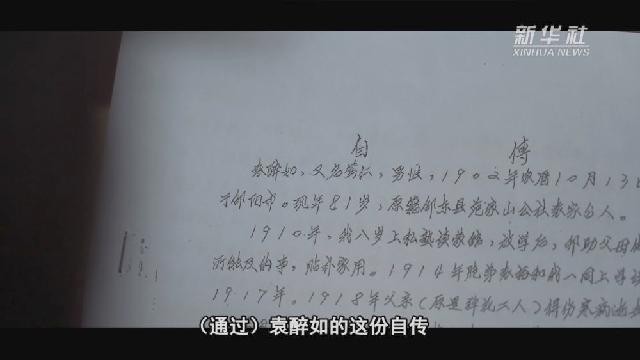 新华社
XINHUA NEWS
自 传
袁醉如,又名
,男性,1902年农历10月13日
于邵阳市。现年81岁,原籍邵东县范家山公社袁家台人。
1910年,我八岁上私塾读家馆,放学后,帮助父母做
所能及的事,贴补家用。1914年
和我一同上学
1917年。1918年父亲(原是 工人)得伤寒病逝
(通过)袁醉如的这份自传